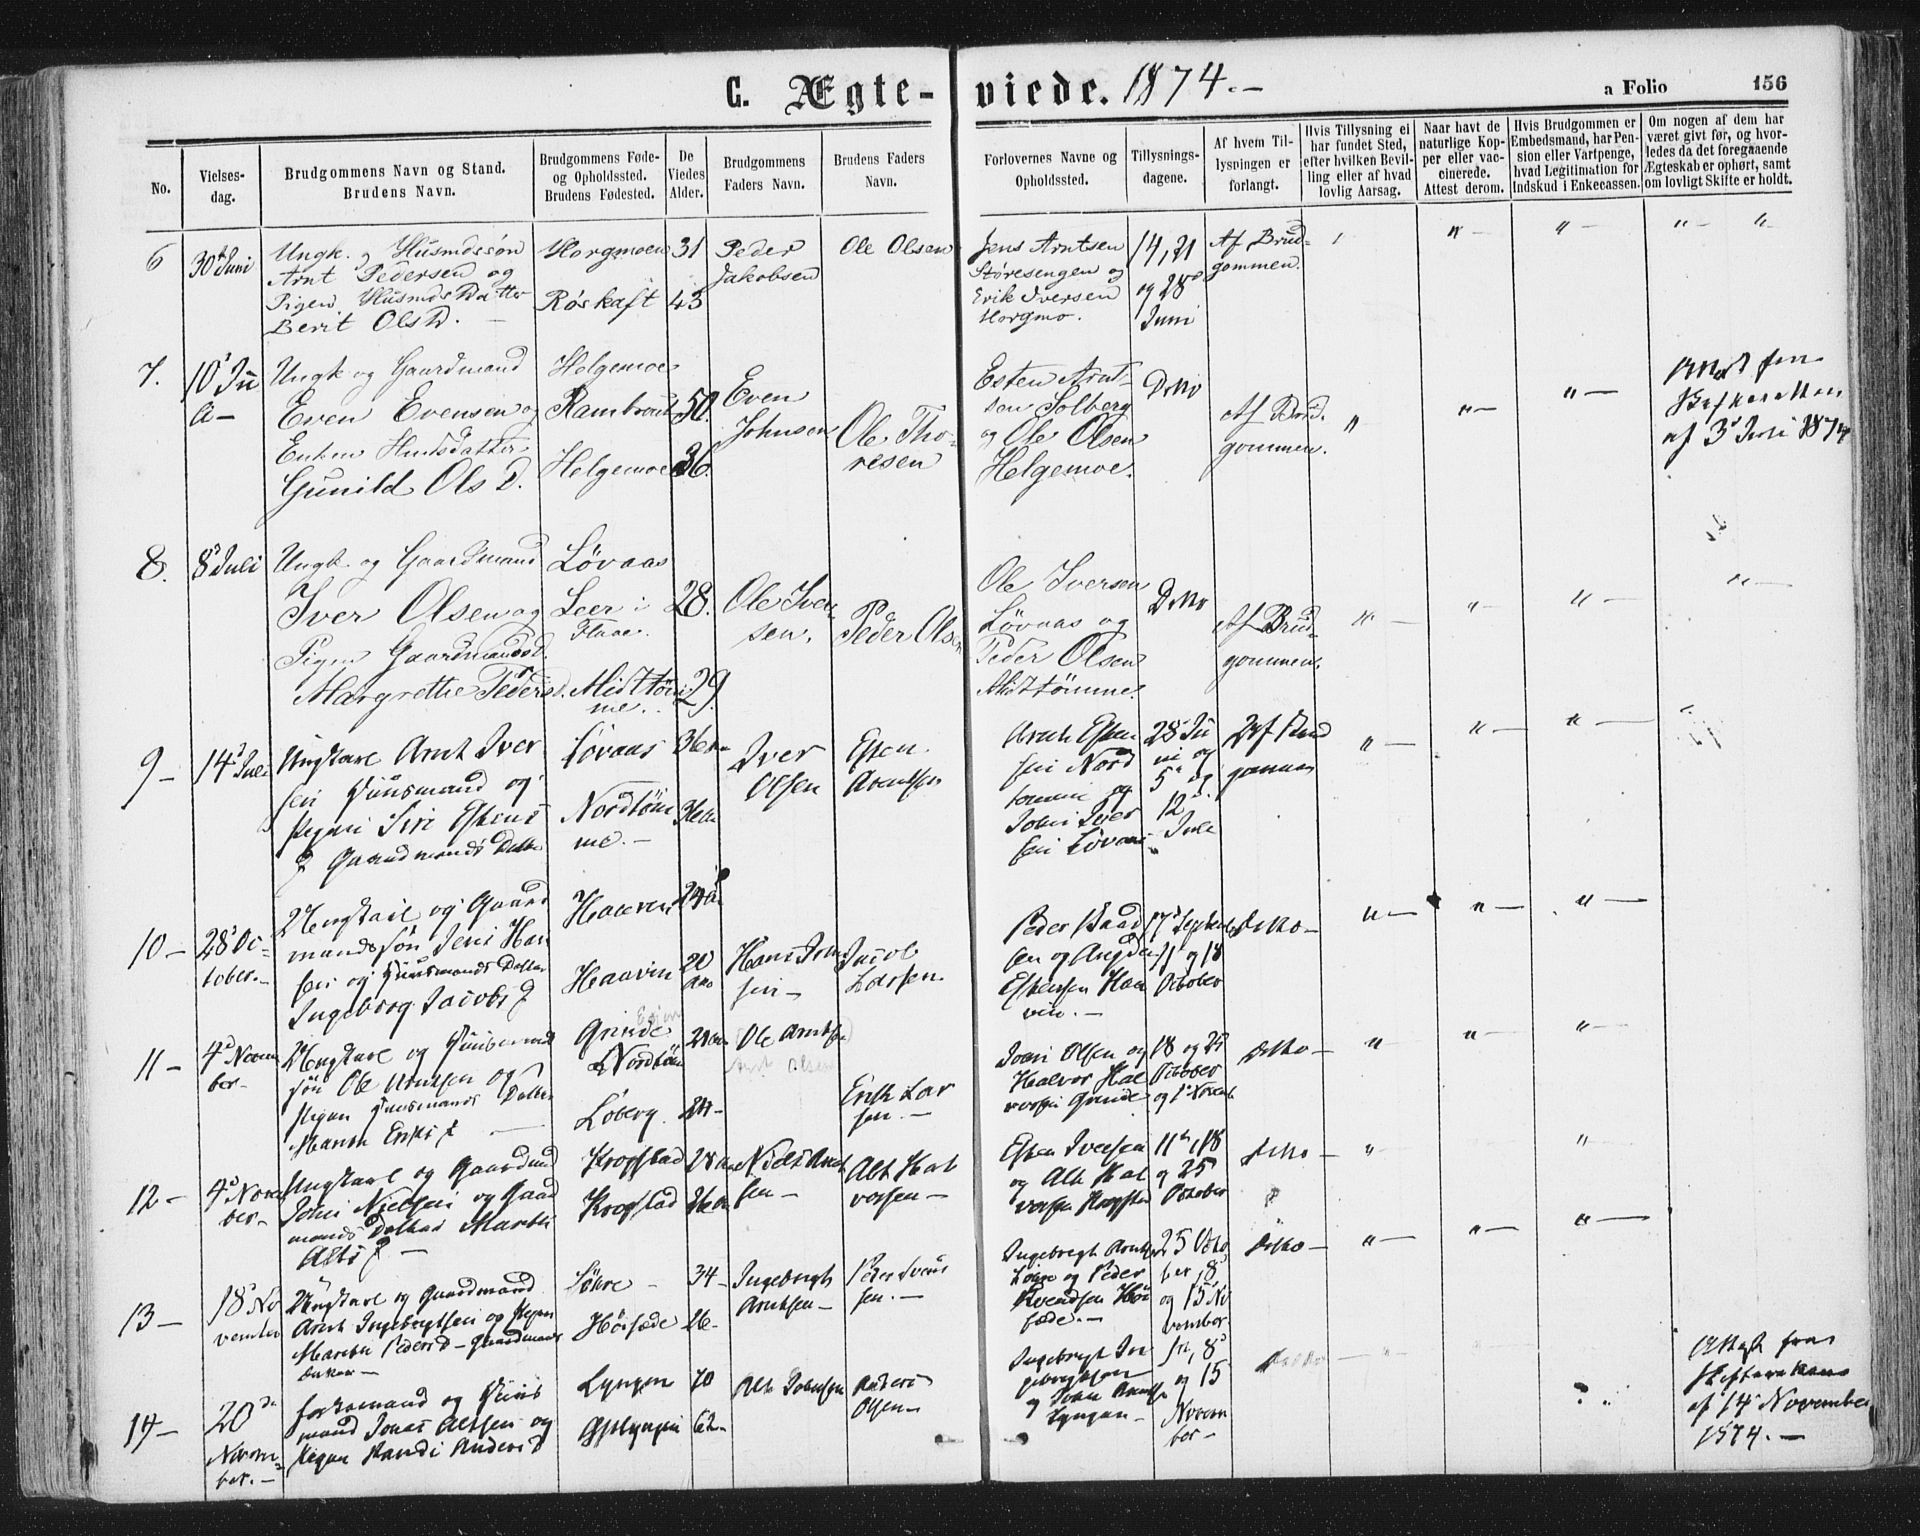 C. Ægte- viede. 1874.-
a Folio 156
No.
Vielses-
dag.
Brudgommens Navn og Stand.
Brudens Navn.
Brudgommens Føde-
og Opholdssted.
Brudens Fødested.
De
Viedes
Alder.
Brudgommens
Faders Navn.
Brudens Faders
Navn.
Forlovernes Navne og
Opholdssted.
Tillysnings-
dagene.
Af hvem Til-
lysningen er
forlangt.
Hvis Tillysning ei
har fundet Sted,
efter hvilken Bevil-
ling eller af hvad
lovlig Aarsag.
Naar havt de
naturlige Kop-
per eller vac-
cinerede.
Attest derom.
Hvis Brudgommen er
Embedsmand, har Pen-
sion eller Vartpenge,
hvad Legitimation for
Indskud i Enkecassen.
Om nogen af dem har
været givt før, og hvor-
ledes da det foregaaende
Ægteskab er ophørt, samt
om lovligt Skifte er holdt.
6
30te Juni
Ungk. og Husmdssøn
Arnt Pedersen og
Pigen Husmds Datter
Berit Ols D. -
Horgmoen
Røskaft
31
43
Peder
Jakobsen
Ole Olsen
Jens Arntsen
Støresengen og
Erik Iversen
Horgmo.
14, 21
og 28d
Juni
Af Brud-
gommen.
7.
10d Ju
li -
Ungk og Gaardmand
Even Evensen og
Enken
Gunild Ols D.
Helgemoe
Helgemoe
50.
36.
Even
Johnsen
Ole Tho-
resen
Esten Arnt-
sen Solberg
og Ole Olsen
Helgemoe.
Ditto
Af Brud-
gommen.
Attest fra
Skifteretten
af 3d Juni 1874
8.
8d Juli
Ungk. og Gaardmand
Iver Olsen og
Pigen Gaardmandsd.
Margrethe Pedersd.
Løvaas
Leer i
Flaae.
Midttøm-
me.
28.
29.
Ole Iver-
sen.
Peder Olsen
Ole Iversen
Løvaas og
Peder Olsen
Midttømme.
Ditto
Af Brud-
gommen.
9 -
14d Juli
Ungkarl Arnt Iver
sen Huusmand og
Pigen Siri Estens
D Gaardmands Datter
Løvaas
Nordtøm
me. -
36
Iver
Olsen
Esten
Arntsen
Arnt Esten
sen Nord
tømme og
John Iver
sen Løvaas
28d Ju
ni og
5te og
12d
Juli
Af Brud
gommen
10 -
28d Oc-
tober. -
Ungkarl og Gaard
mandssøn Jens Han
sen og Huusmands Datter
Ingeborg Jacobs D
Haaven
Haaven
24
20
Hans Jen
sen -
Jacob
Larsen
Peder
sen og
Estensen Haa
ven. -
17d September
11 og 18
October
Ditto -
11 -
4d Novem
ber. -
Ungkarl og Huusmands
søn Ole Arntsen og
Pigen Huusmands Datter
Marit Eriks D -
Grinde
Nordtøm
Løberg
24 -
Ole Arntsen
Arnt Olsen
Erik Lar
sen. -
John Olsen og
Halvor Hal
vorsen Grinde
18 og 25
October
og 1d Novemb
Ditto -
12 -
4d Novem
ber -
Ungkarl og Gaardmd
John Nielsen og Gaard
mands Datter Marit
Alts D -
Krogstad
Krogstad
28
26
Niels Arnt
sen -
Alt Hal
vorsen -
Esten Iversen
og Alt Hal
vorsen Krogstad
11te, 18
og 25
October
Ditto -
13 -
18d No
vember
Ungkarl og Gaardmand
Arnt Ingebrigtsen og Pigen
Marit Pedersd - Gaardmands
Enken -
Søhre -
34 -
26 -
Ingebrigt
Arntsen -
Peder Svend
sen. -
Ingebrigt Arntsen
Søhre og Peder
Svendsen
25 Octo
ber, 8d
og 15 No
vember
Ditto -
14 -
20de
Novem-
ber. -
Enkemand og Huus
mand Jonas Altsen og
Pigen Randi Anders D
Lyngen
Østlyngen
70
62
Alt Johnsen
Anders
Olsen -
Ingebrigt In
gebrigtsen
og John Arnts
Lyngen -
1st, 8d
og 15
Novem
ber -
Ditto
Attest fra
Skifteretten
af 14 November
1874. -